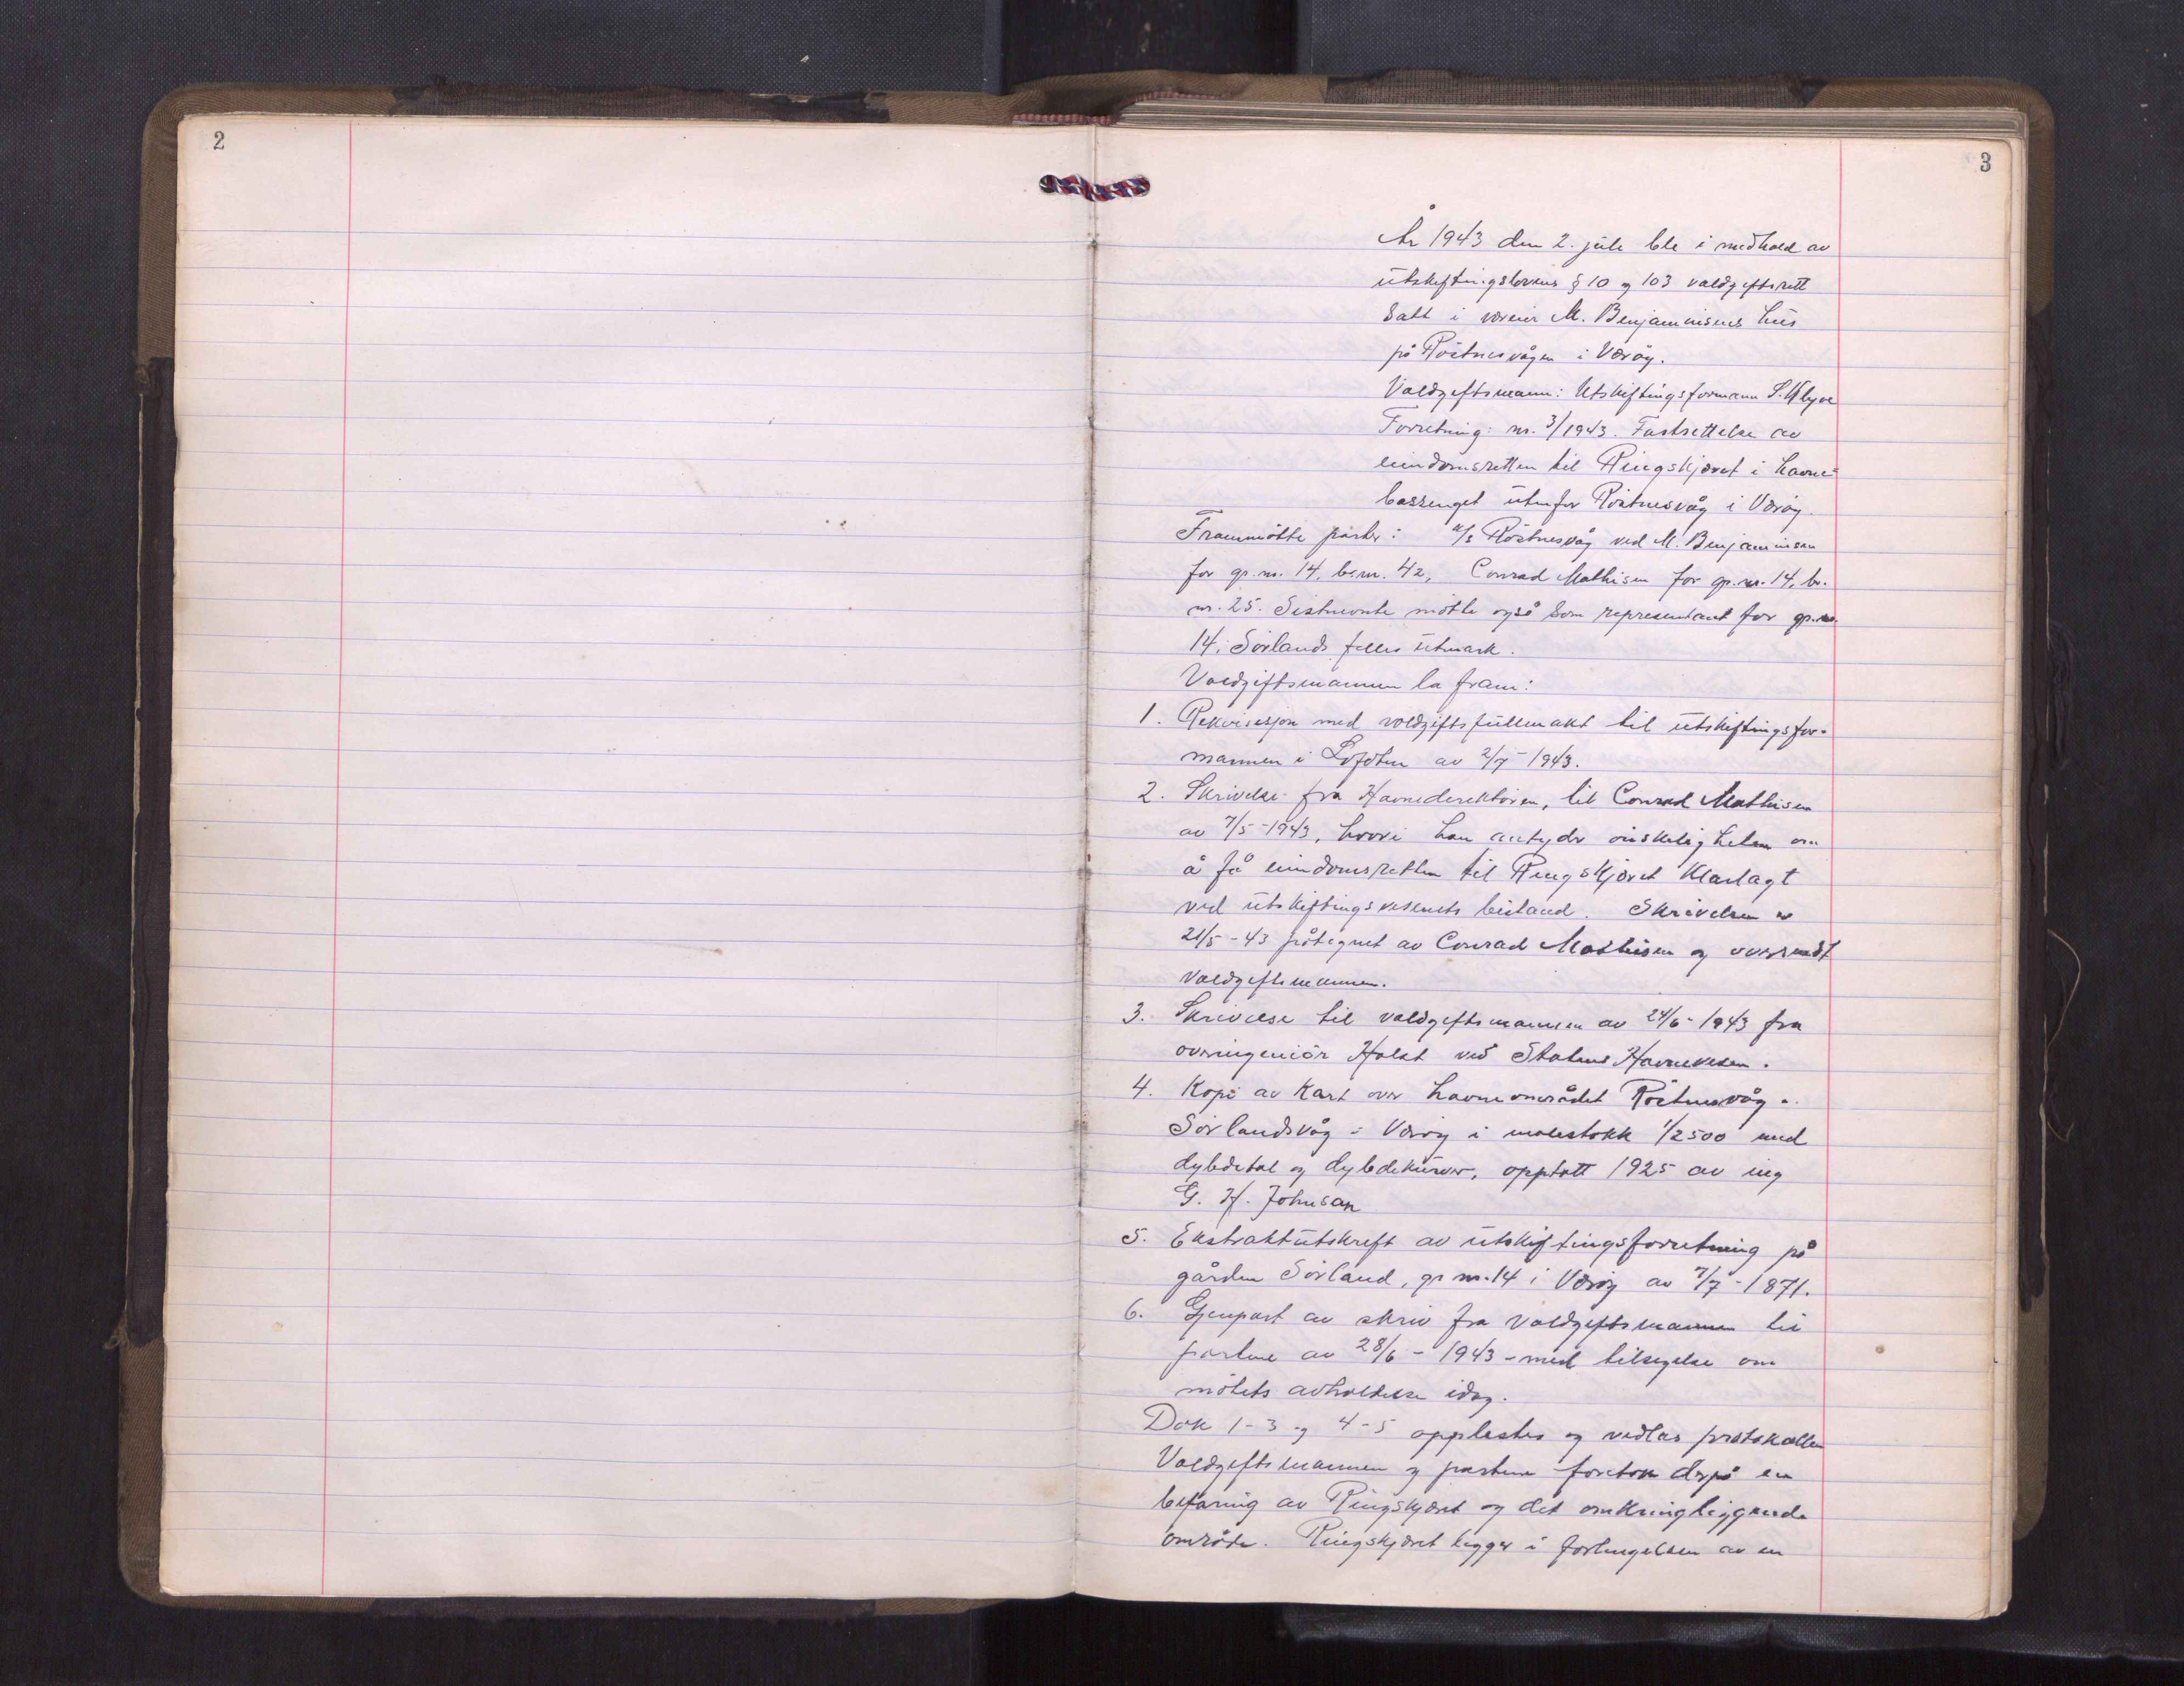 2
3
År 1943 den 2. juli ble i medhold av
utskiftingslovens § 10 og 103 voldgiftsrett
satt i væreier M. Benjaminsens hus
på Röstnesvågen i Væröy.
Voldgiftsmann: Utskiftingsformann S. Klyve
Forretning: nr. 3/1943. Fastsettelse av
eiendomsretten til Ringskjæret i havne-
bassenget utenfor Röstnesvåg i Væröy.
Frammötte parter: a/s Röstnesvåg ved M. Benjaminsen
for gr.nr. 14, br.nr. 42, Conrad Mathisen for gr.nr. 14, br.
nr. 25. Sistnevnte mötte også som representant for gr.nr.
14, Sörlands felles utmark.
Voldgiftsmannen la fram:
1. Rekvisisjon med voldgiftsfullmakt til utskiftingsfor-
mannen i Lofoten av 2/7-1943.
2. Skrivelse fra Havnedirektören, til Conrad Mathisen
av 7/5-1943, hvori han antyder önskeligheten om
å få eiendomsretten til Ringskjæret klarlagt
ved utskiftingsvesenets bistand. Skrivelsen er
21/5-43 påtegnet av Conrad Mathisen og oversendt
voldgiftsmannen.
3. Skrivelse til voldgiftsmannen av 24/6-1943 fra
overingeniör Holst ved Statens Havnevesen.
4. Kopi av kart over havneområdet Röstnesvåg -
Sörlandsvåg i Væröy i målestokk 1/2500 med
dybdetal og dybdekurver, opptatt 1925 av ing
G. H. Johnsen
5. Ekstraktutskrift av utskiftingsforretning på
gården Sörland, gr nr. 14 i Væröy av 7/7-1871.
6. Gjenpart av skriv fra voldgiftsmannen til
partene av 28/6-1943 - med tilsigelse om
mötets avholdelse idag.
Dok 1-3 og 4-5 opplestes og vedlas protokollen
Voldgiftsmannen og partene foretok derpå en
befaring av Ringskjæret og det omkringliggende
område. Ringskjæret ligger i forlengelsen av en